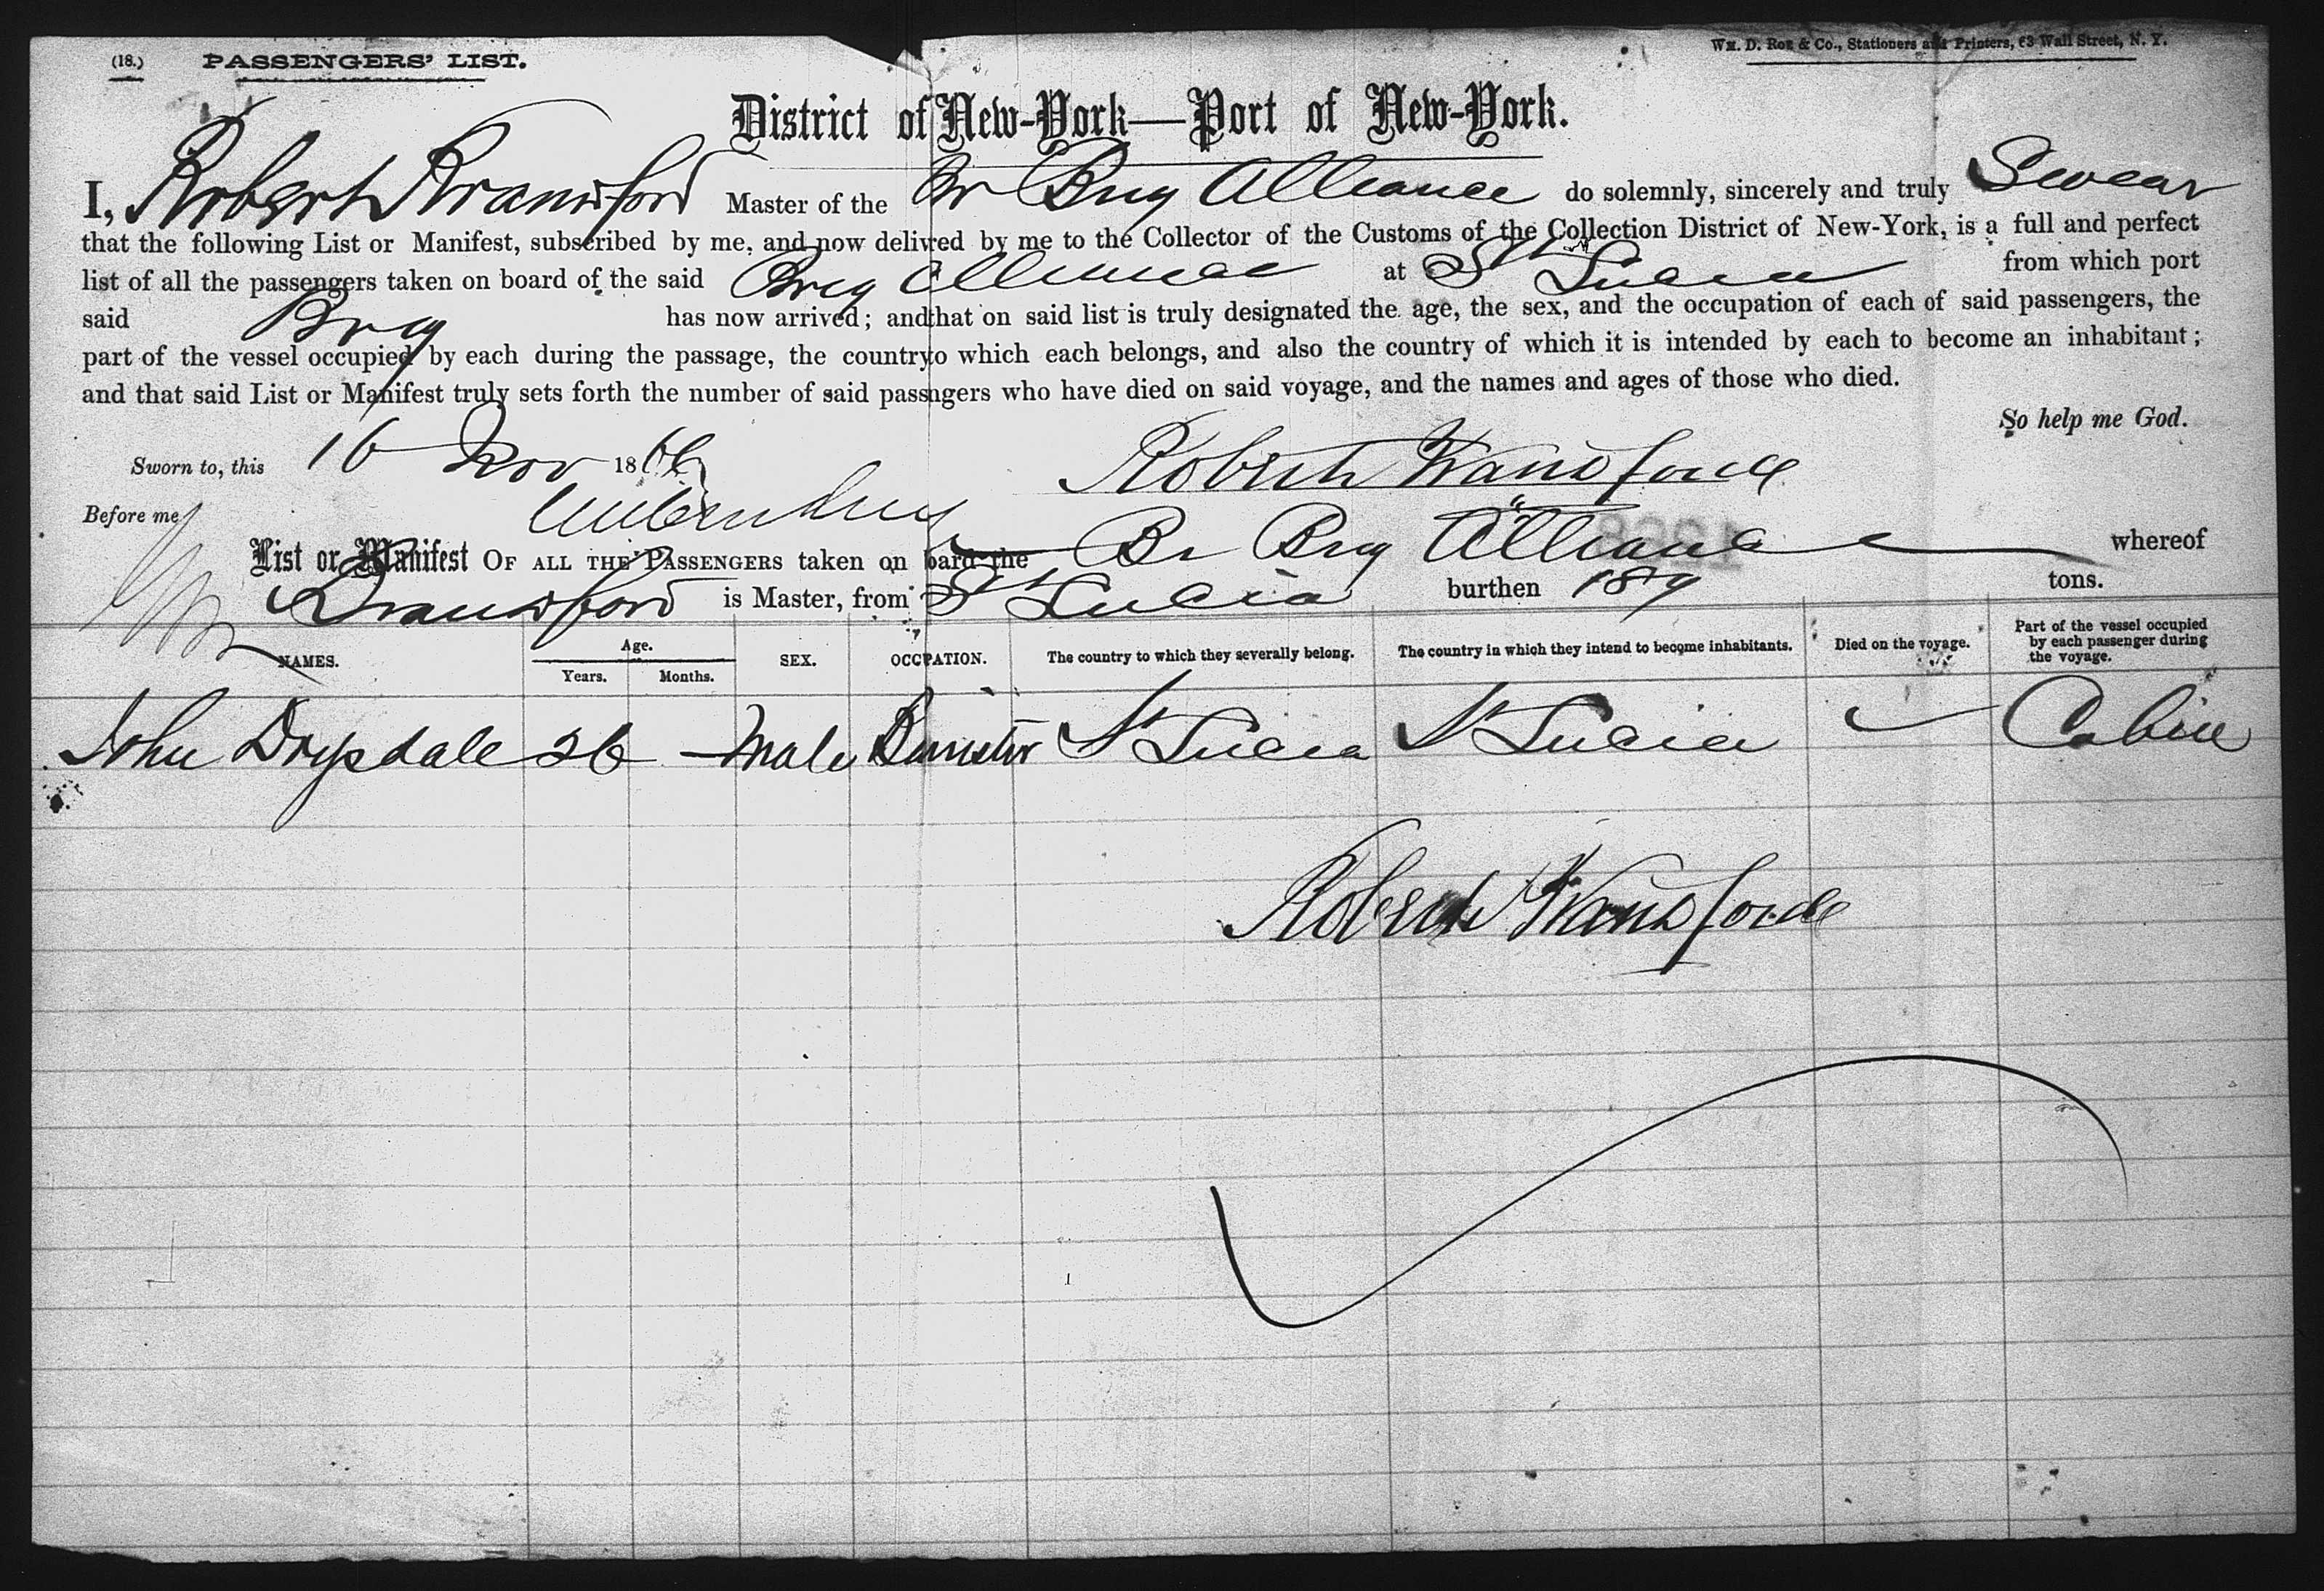 (18.) PASSENGERS' LIST. Wm. D. Roe & Co., Stationers and Printers, 63 Wall Street, N. Y.
District of New-York—Port of New-York.
I, Robert Master of the Br Brig Alliance do solemnly, sincerely and truly Swear
that the following List or Manifest, subscribed by me, and now delivred by me to the Collector of the Customs of the Collection District of New-York, is a full and perfect
list of all the passengers taken on board of the said Brig Alliance at St Lucia from which port
said Brig has now arrived; and that on said list is truly designated the age, the sex, and the occupation of each of said passengers, the
part of the vessel occupied by each during the passage, the country to which each belongs, and also the country of which it is intended by each to become an inhabitant;
and that said List or Manifest truly sets forth the number of said passengers who have died on said voyage, and the names and ages of those who died.
So help me God.
Sworn to, this 16 Nov 1866 Robert
Before me
List or Manifest OF ALL THE PASSENGERS taken on board the Br Brig Alliance whereof
is Master, from St Lucia burthen 189 tons.
NAMES. Age. Years. Months. SEX. OCCUPATION. The country to which they severally belong. The country in which they intend to become inhabitants. Died on the voyage. Part of the vessel occupied by each passenger during the voyage.
John Drysdale 26 Male Barrister St Lucia St Lucia Cabin
Robert